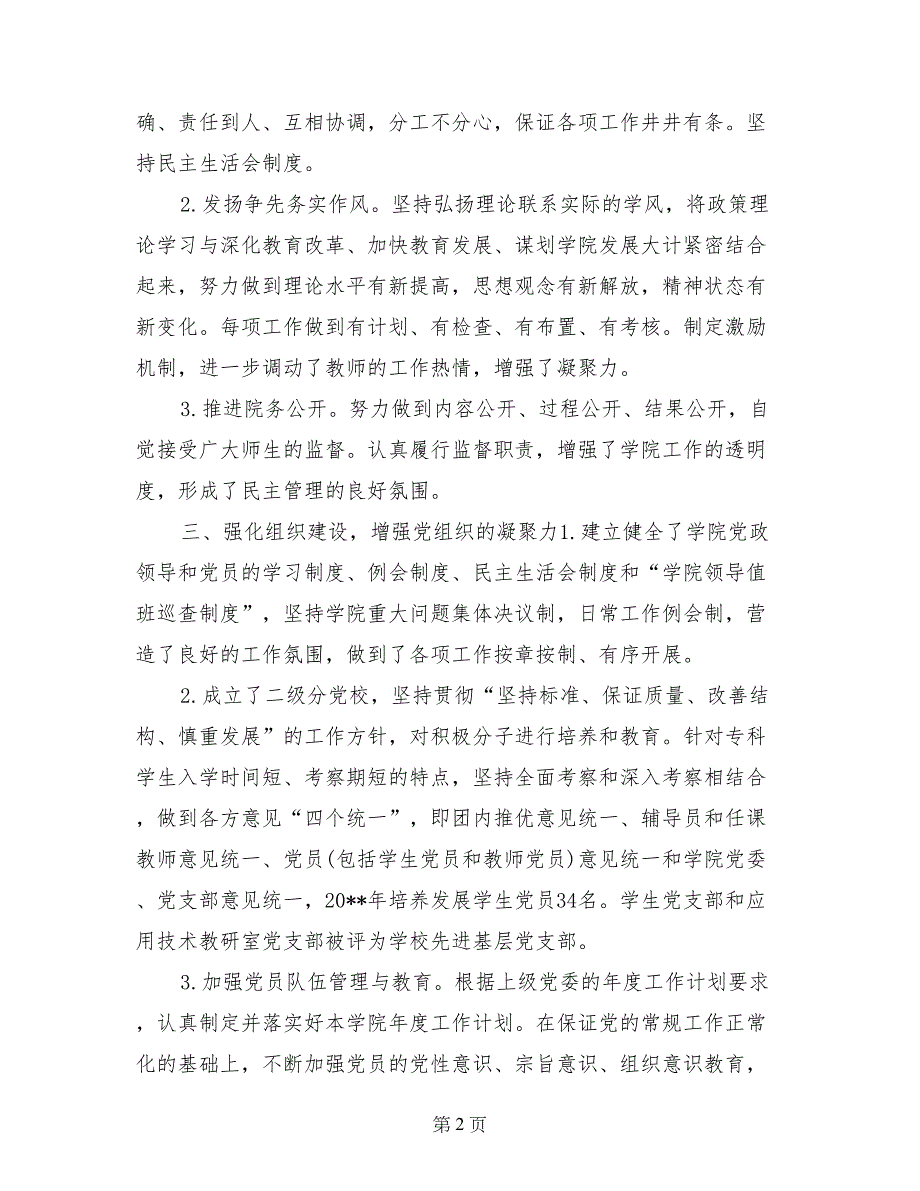 确、责任到人、互相协调，分工不分心，保证各项工作井井有条。坚
持民主生活会制度。
2.发扬争先务实作风。坚持弘扬理论联系实际的学风，将政策理
论学习与深化教育改革、加快教育发展、谋划学院发展大计紧密结合
起来，努力做到理论水平有新提高，思想观念有新解放，精神状态有
新变化。每项工作做到有计划、有检查、有布置、有考核。制定激励
机制，进一步调动了教师的工作热情，增强了凝聚力。
3.推进院务公开。努力做到内容公开、过程公开、结果公开，自
觉接受广大师生的监督。认真履行监督职责，增强了学院工作的透明
度，形成了民主管理的良好氛围。
三、强化组织建设，增强党组织的凝聚力1.建立健全了学院党政
领导和党员的学习制度、例会制度、民主生活会制度和“学院领导值
班巡查制度”，坚持学院重大问题集体决议制，日常工作例会制，营
造了良好的工作氛围，做到了各项工作按章按制、有序开展。
2.成立了二级分党校，坚持贯彻“坚持标准、保证质量、改善结
构、慎重发展”的工作方针，对积极分子进行培养和教育。针对专科
学生入学时间短、考察期短的特点，坚持全面考察和深入考察相结合
，做到各方意见“四个统一”，即团内推优意见统一、辅导员和任课
教师意见统一、党员(包括学生党员和教师党员)意见统一和学院党委
、党支部意见统一，20**年培养发展学生党员34名。学生党支部和应
用技术教研室党支部被评为学校先进基层党支部。
3.加强党员队伍管理与教育。根据上级党委的年度工作计划要求
，认真制定并落实好本学院年度工作计划。在保证党的常规工作正常
化的基础上，不断加强党员的党性意识、宗旨意识、组织意识教育，
第 2 页